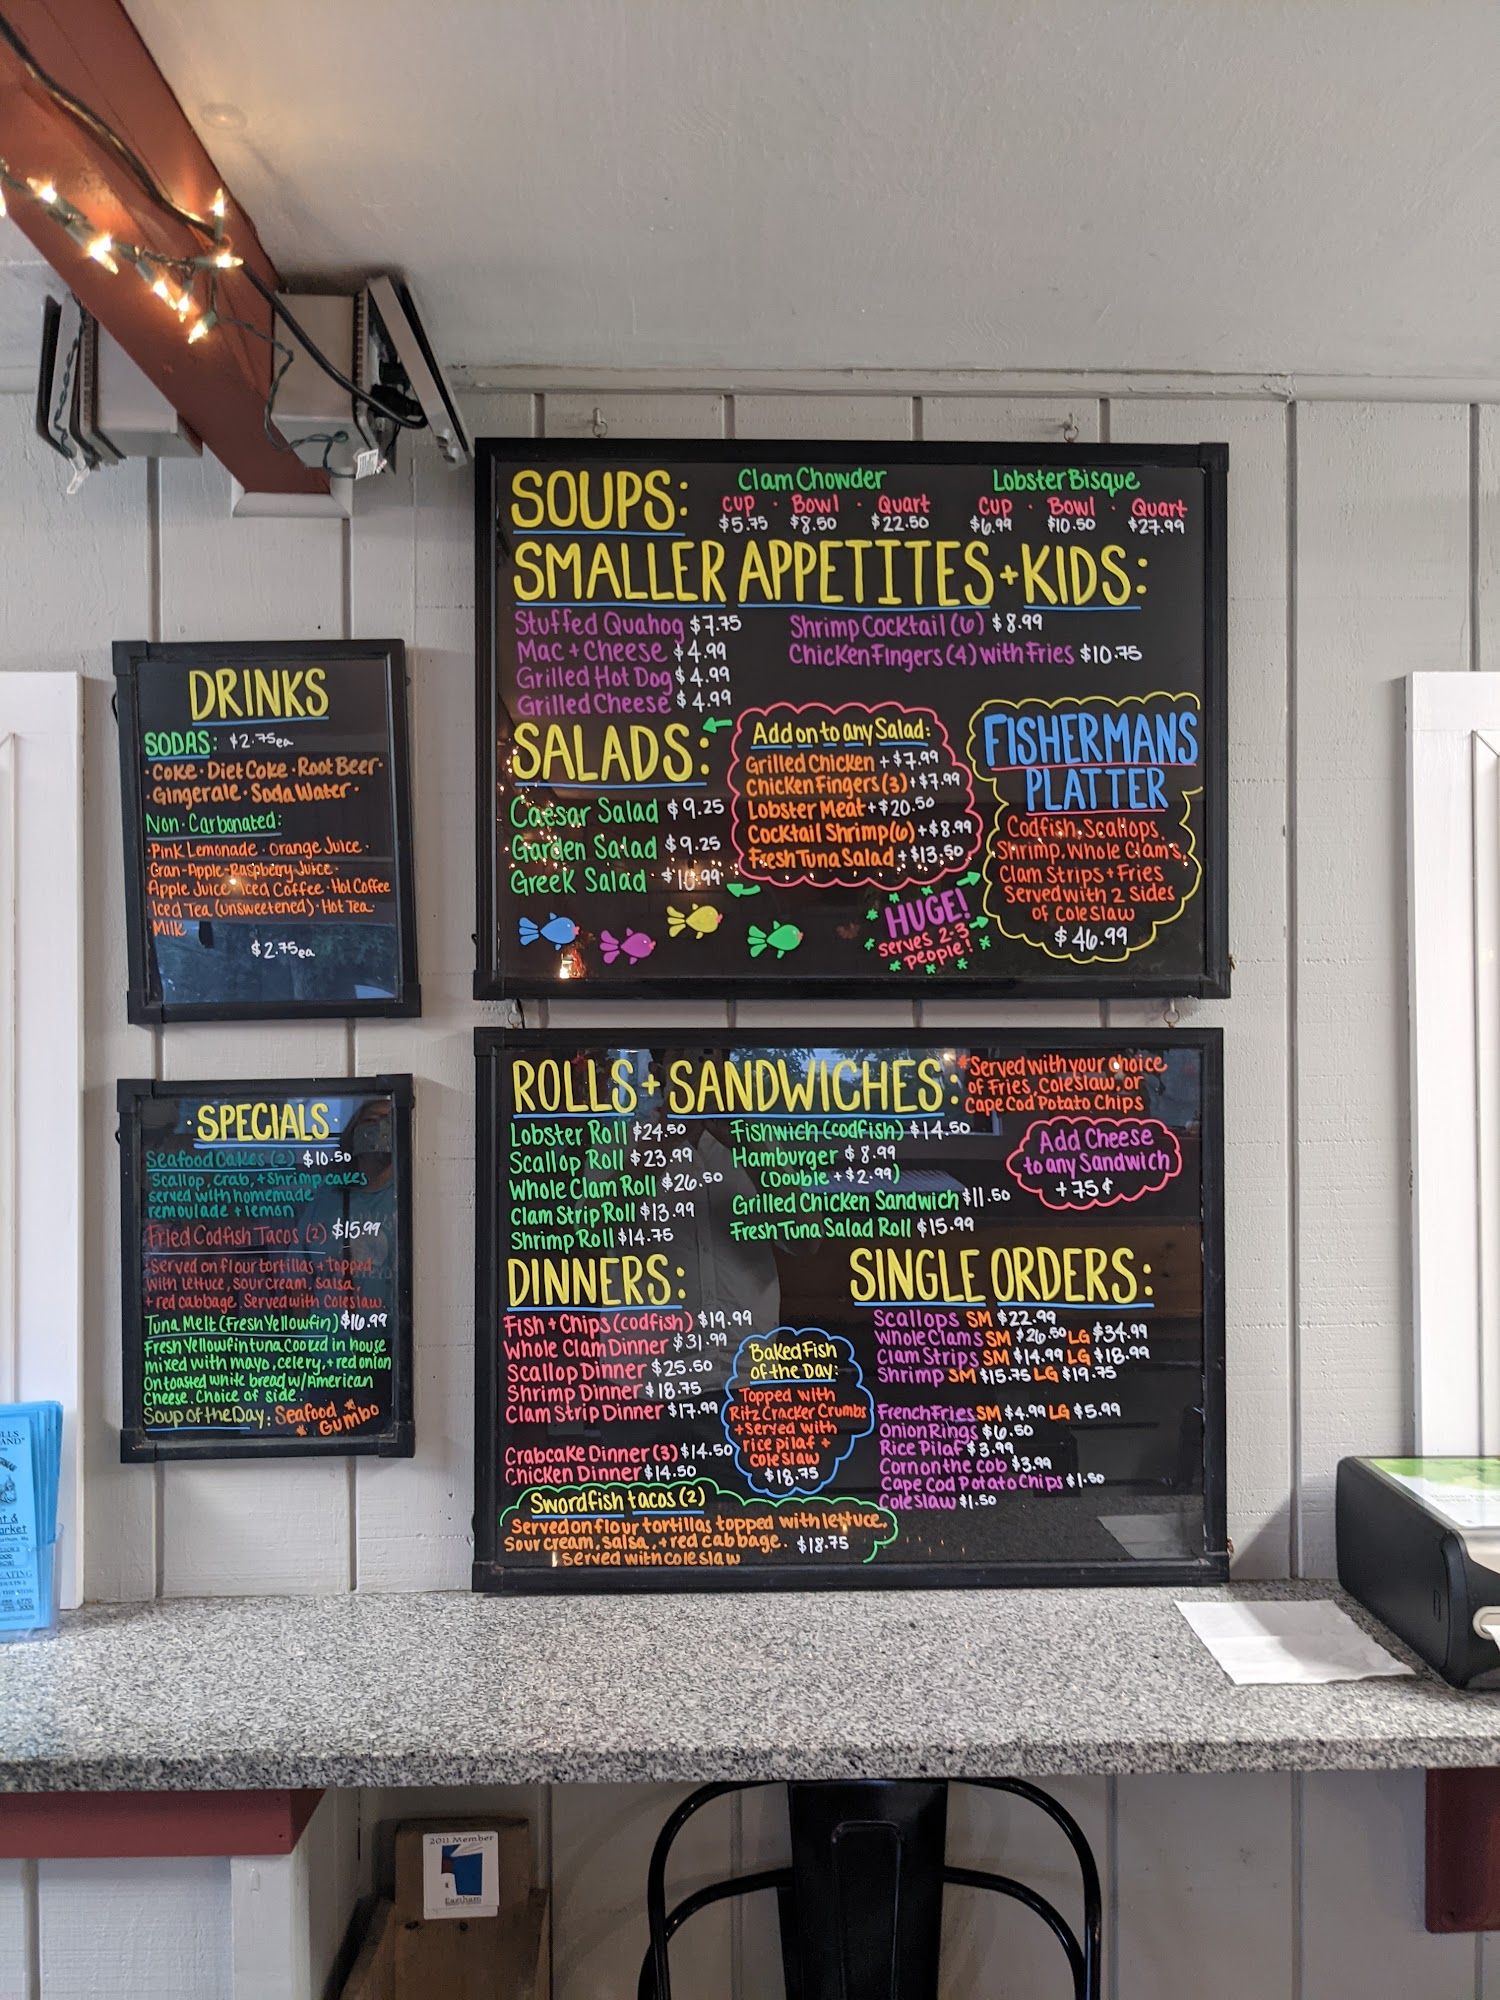 SOUPS:
Clam Chowder
Cup · Bowl · Quart
$5.75 $8.50 $22.50
Lobster Bisque
Cup · Bowl · Quart
$6.99 $10.50 $27.99
SMALLER APPETITES + KIDS:
Stuffed Quahog $7.75
Mac + Cheese $4.99
Grilled Hot Dog $4.99
Grilled Cheese $4.99
Shrimp Cocktail (6) $8.99
Chicken Fingers (4) with Fries $10.75
SALADS:
Caesar Salad $9.25
Garden Salad $9.25
Greek Salad $10.99
Add on to any Salad:
Grilled Chicken +$7.99
Chicken Fingers (3) +$7.99
Lobster Meat +$20.50
Cocktail Shrimp (6) +$8.99
Fresh Tuna Salad +$13.50
FISHERMANS
PLATTER
Codfish, Scallops,
Shrimp, Whole Clam's,
Clam Strips + Fries
Served with 2 Sides
of Coleslaw
$46.99
HUGE!
serves 2-3
people!
DRINKS
SODAS: $2.75ea
· Coke · Diet Coke · Root Beer ·
· Gingerale · Soda Water ·
Non-Carbonated:
· Pink Lemonade · Orange Juice ·
Cran-Apple-Raspberry Juice ·
Apple Juice · Iced Coffee · Hot Coffee
Iced Tea (unsweetened) · Hot Tea ·
Milk
$2.75ea
· SPECIALS ·
Seafood Cakes (2) $10.50
Scallop, crab, + Shrimp cakes
served with homemade
remoulade + lemon
Fried Codfish Tacos (2) $15.99
Served on flour tortillas + topped
with lettuce, sour cream, salsa,
+ red cabbage. Served with Coleslaw.
Tuna Melt (Fresh Yellowfin) $16.99
Fresh Yellowfin tuna cooked in house
mixed with mayo, celery, + red onion
On toasted white bread w/ American
Cheese. Choice of side.
Soup of the Day: Seafood
Gumbo
ROLLS + SANDWICHES:
*Served with your choice
of Fries, Coleslaw, or
Cape Cod Potato Chips
Lobster Roll $24.50
Scallop Roll $23.99
Whole Clam Roll $26.50
Clam Strip Roll $13.99
Shrimp Roll $14.75
Fishwich (codfish) $14.50
Hamburger $8.99
(Double +$2.99)
Grilled Chicken Sandwich $11.50
Fresh Tuna Salad Roll $15.99
Add Cheese
to any Sandwich
+75¢
DINNERS:
Fish + Chips (codfish) $19.99
Whole Clam Dinner $31.99
Scallop Dinner $25.50
Shrimp Dinner $18.75
Clam Strip Dinner $17.99
Crabcake Dinner (3) $14.50
Chicken Dinner $14.50
Baked Fish
of the Day:
Topped with
Ritz Cracker Crumbs
+ Served with
rice pilaf +
coleslaw
$18.75
Swordfish tacos (2)
Served on flour tortillas topped with lettuce,
sour cream, salsa, + red cabbage. $18.75
served with coleslaw
SINGLE ORDERS:
Scallops SM $22.99
Whole Clams SM $26.50 LG $34.99
Clam Strips SM $14.99 LG $18.99
Shrimp SM $15.75 LG $19.75
French Fries SM $4.99 LG $5.99
Onion Rings $6.50
Rice Pilaf $3.99
Corn on the Cob $3.99
Cape Cod Potato Chips $1.50
Coleslaw $1.50
2011 Member
Eastham